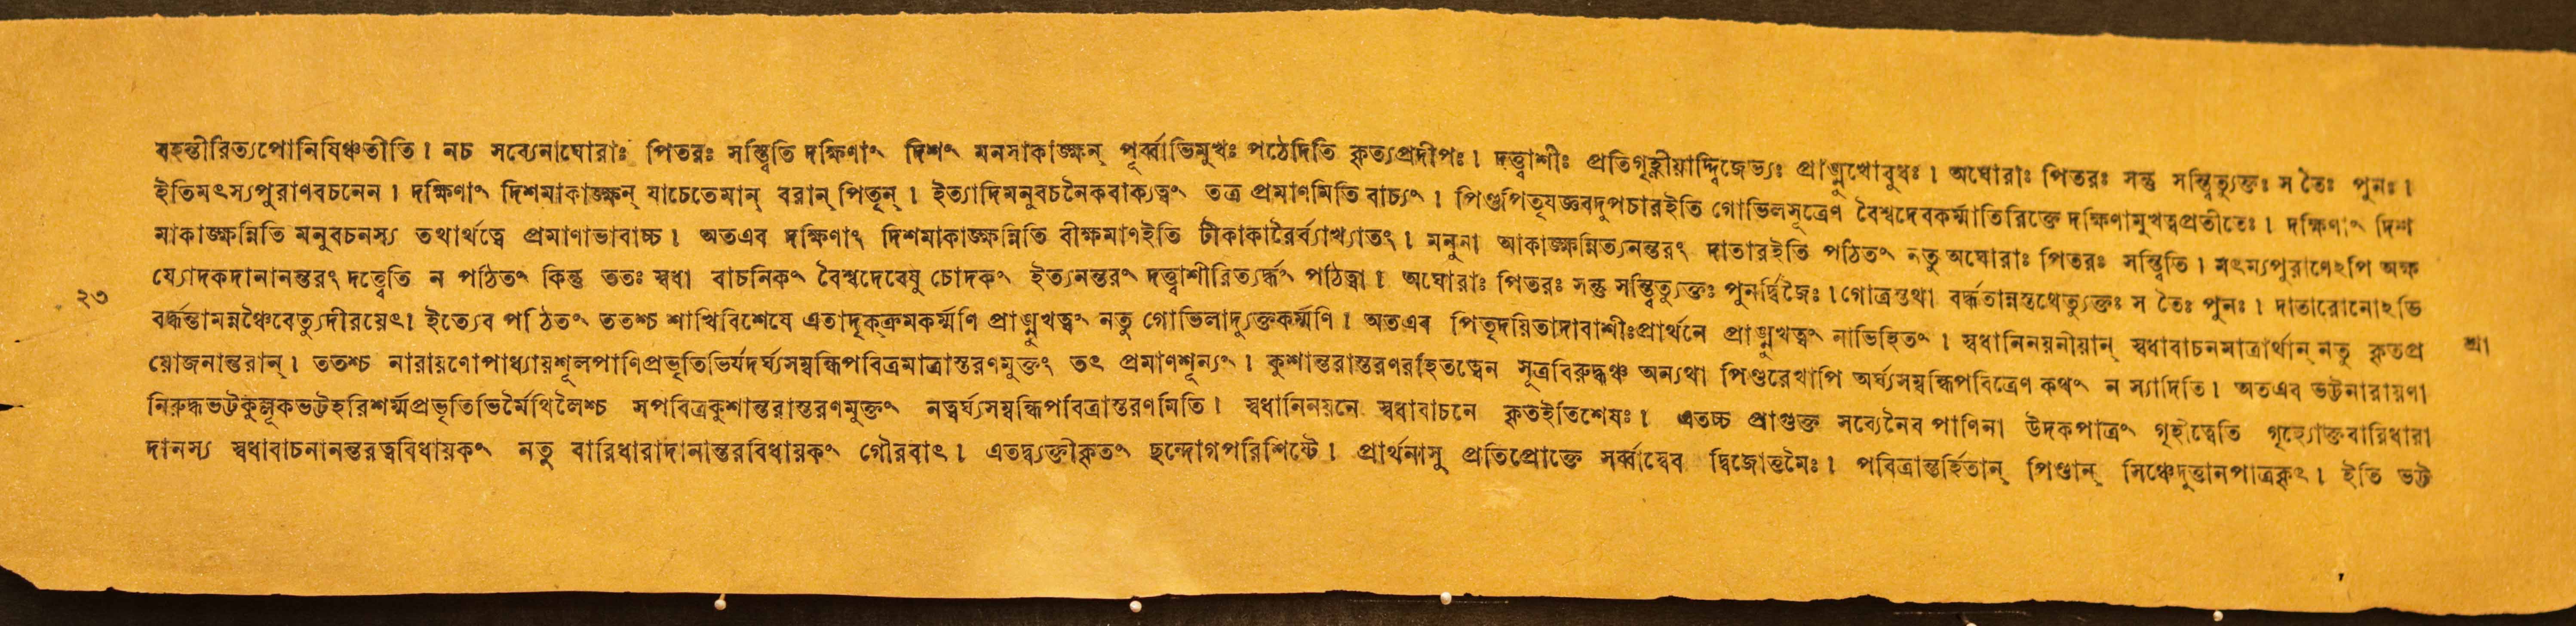 বহন্তীরিত্যপোনিষিঞ্চতীতি। নচ সব্যেনাঘোরাঃ পিতরঃ সন্ত্বিতি দক্ষিণাং দিশং মনসাকাঙ্ক্ষন্ পূর্ব্বাভিমুখঃ পঠেদিতি কৃত্যপ্রদীপঃ। দত্ত্বাশীঃ প্রতিগৃহ্ণীয়াদ্দ্বিজেভ্যঃ প্রাঙ্মুখোবুধঃ। অঘোরাঃ পিতরঃ সন্তু সন্ত্বিত্যুক্তঃ স তৈঃ পুনঃ।
ইতিমৎস্যপুরাণবচনেন। দক্ষিণাং দিশমাকাঙ্ক্ষন্ যাচেতেমান্ বরান্ পিতৄন্। ইত্যাদিমনুবচনৈকবাক্যত্বং তত্র প্রমাণমিতি বাচ্যং। পিণ্ডপিতৃযজ্ঞবদুপচারইতি গোভিলসূত্রেণ বৈশ্বদেবকর্ম্মাতিরিক্তে দক্ষিণামুখত্বপ্রতীতেঃ। দক্ষিণাং দিশ
মাকাঙ্ক্ষন্নিতি মনুবচনস্য তথার্থত্বে প্রমাণাভাবাচ্চ। অতএব দক্ষিণাং দিশমাকাঙ্ক্ষন্নিতি বীক্ষমাণইতি টীকাকারৈর্ব্যাখ্যাতং। মনুনা আকাঙ্ক্ষন্নিত্যনন্তরং দাতারইতি পঠিতং নতু অঘোরাঃ পিতরঃ সন্ত্বিতি। মৎস্যপুরাণেঽপি অক্ষ
য্যোদকদানানন্তরং দত্ত্বেতি ন পঠিতং কিন্তু ততঃ স্বধা বাচনিকং বৈশ্বদেবেষু চোদকং ইত্যনন্তরং দত্ত্বাশীরিত্যর্দ্ধং পঠিত্বা। অঘোরাঃ পিতরঃ সন্তু সন্ত্বিত্যুক্তঃ পুনর্দ্বিজৈঃ। গোত্রন্তথা বর্দ্ধতান্নস্তথেত্যুক্তঃ স তৈঃ পুনঃ। দাতারোনোঽভি
২৩
বর্দ্ধন্তামন্নঞ্চৈবেত্যুদীরয়েৎ। ইত্যেব পঠিতং ততশ্চ শাখিবিশেষে এতাদৃক্ক্রমকর্ম্মণি প্রাঙ্মুখত্বং নতু গোভিলাদ্যুক্তকর্ম্মণি। অতএব পিতৃদয়িতাদাবাশীঃপ্রার্থনে প্রাঙ্মুখত্বং নাভিহিতং। স্বধানিনয়নীয়ান্ স্বধাবাচনমাত্রার্থান্ নতু কৃতপ্র
শ্রা
য়োজনান্তরান্। ততশ্চ নারায়ণোপাধ্যায়শূলপাণিপ্রভৃতিভির্যদর্ঘ্যসম্বন্ধিপবিত্রমাত্রাস্তরণমুক্তং তৎ প্রমাণশূন্যং। কুশান্তরাস্তরণরহিতত্বেন সূত্রবিরুদ্ধঞ্চ অন্যথা পিণ্ডরেখাপি অর্ঘ্যসম্বন্ধিপবিত্রেণ কথং ন স্যাদিতি। অতএব ভট্টনারায়ণা
নিরুদ্ধভট্টকুল্লূকভট্টহরিশর্ম্মপ্রভৃতিভির্মৈথিলৈশ্চ সপবিত্রকুশান্তরাস্তরণমুক্তং নত্বর্ঘ্যসম্বন্ধিপবিত্রাস্তরণমিতি। স্বধানিনয়নে স্বধাবাচনে কৃতইতিশেষঃ। এতচ্চ প্রাগুক্ত সব্যেনৈব পাণিনা উদকপাত্রং গৃহীত্বেতি গৃহ্যোক্তবারিধারা
দানস্য স্বধাবাচনানন্তরত্ববিধায়কং নতু বারিধারাদানান্তরবিধায়কং গৌরবাৎ। এতদ্ব্যক্তীকৃতং ছন্দোগপরিশিষ্টে। প্রার্থনাসু প্রতিপ্রোক্তে সর্ব্বাস্বেব দ্বিজোত্তমৈঃ। পবিত্রান্তর্হিতান্ পিণ্ডান্ সিঞ্চেদুত্তানপাত্রকৃৎ। ইতি ভট্ট